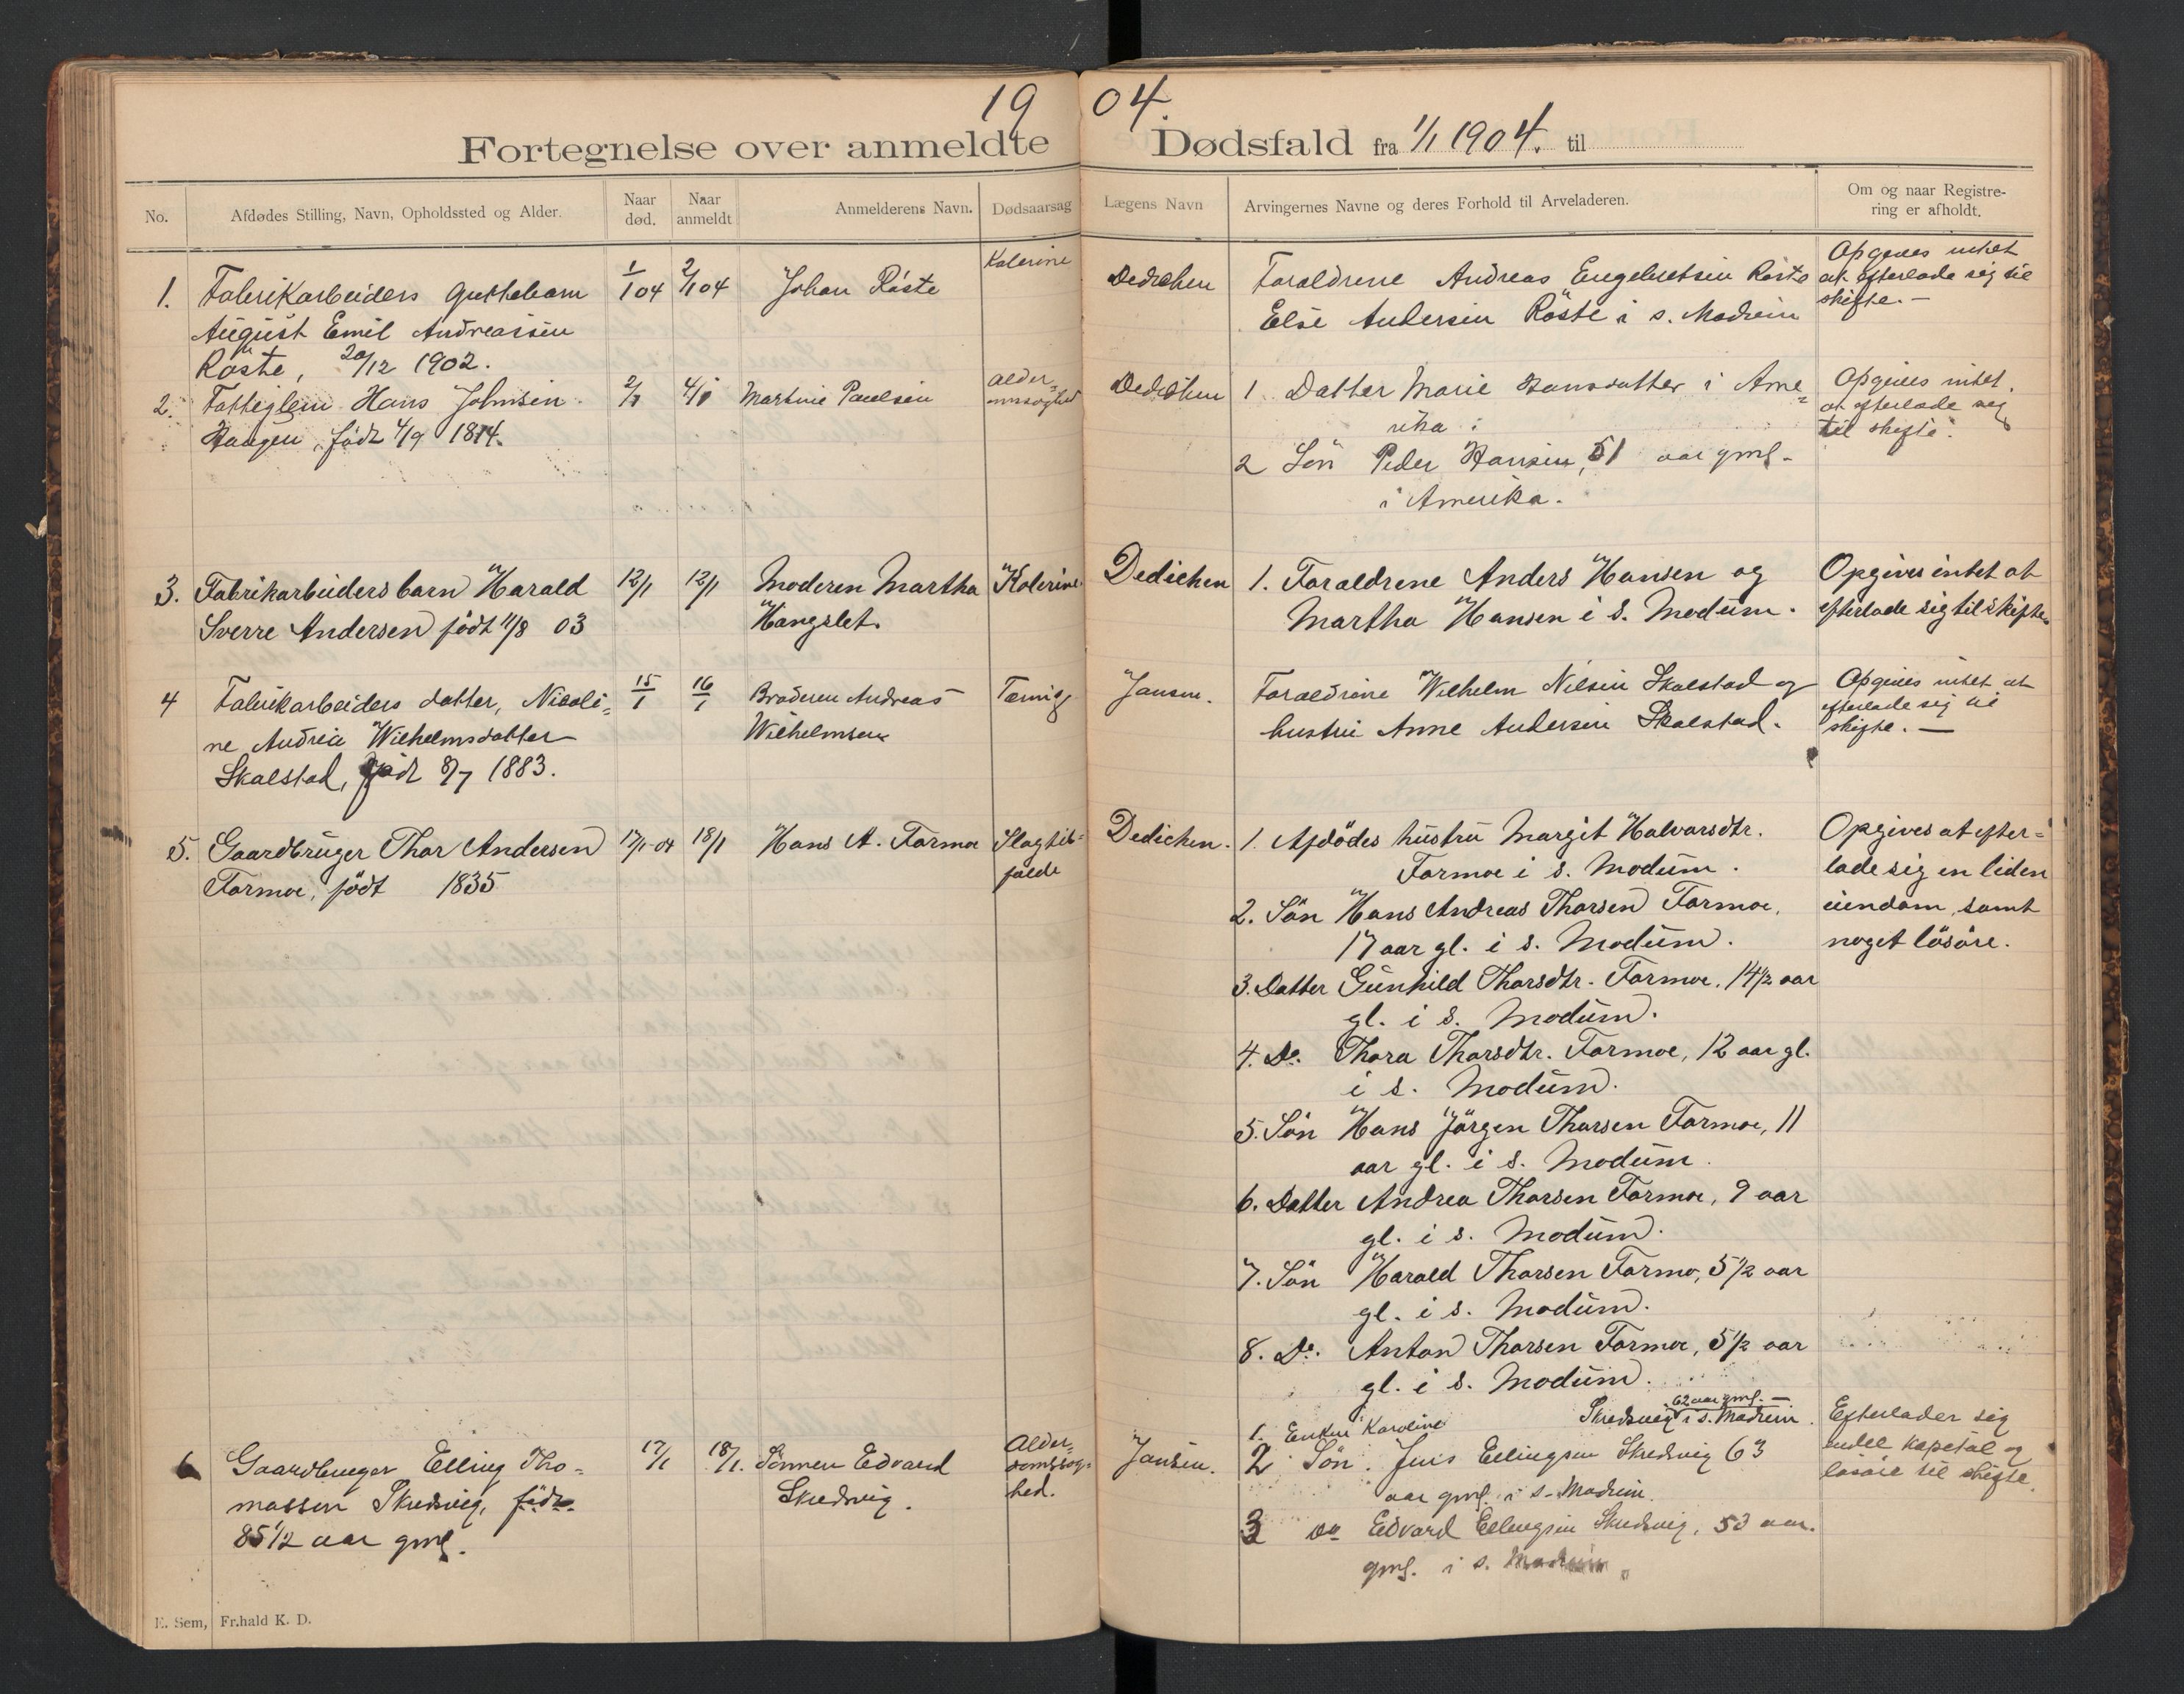 19 04.
Fortegnelse over anmeldte Dødsfald fra 1/1 1904. til
No.
Afdødes Stilling, Navn, Opholdssted og Alder.
Naar død.
Naar anmeldt
Anmelderens Navn.
Dødsaarsag
Lægens Navn
Arvingernes Navne og deres Forhold til Arveladeren.
Om og naar Registre-
ring er afholdt.
1. Fabrikarbeiders guttebarn
August Emil Andreassen
Röste, 20/12 1902.
1/1 04
2/1 04
Johan Röste
Kolerine
Dedichen
Foraldrene Andreas Engebretsen Röste
Else Andersen Röste i s. Modum
Opgives intet
at efterlade sig til
skifte. —
2. Fattiglem Hans Johnsen
Haugen, född 4/9 1814.
2/1
4/1
Martine Paulsen
Alder-
omssvaghed
Dedichen
1 Datter Marie Hansdatter i Ame=
rika
2 Sön Peder Hansen, 51 aar gml.
i Amerika.
Opgives intet
at efterlade sig
til skifte.
3. Fabrikarbeiders barn Harald
Sverre Andersen födt 11/8 03
12/1
12/1
Moderen Martha
Hangslet.
Kolerine
Dedichen
1. Foraldrene Anders Hansen og
Martha Hansen i S. Modum.
Opgives intet at
efterlade sig til skifte.
4 Fabrikarbeiders datter, Nicoli=
ne Andrea Wilhelmsdatter
Skalstad, föd 8/7 1883.
15/1
16/1
Broderen Andreas
Wilhelmsen
Tæring
Jansen.
Foraldrene Wilhelm Nilsen Skalstad og
hustru Anne Andersen Skalstad.
Opgives intet at
efterlade sig til
skifte. —
5. Gaardbruger Thor Andersen
Formoe, födt 1835
17/1-04
18/1
Hans A. Formoe
Slagtil=
fælde
Dedichen.
1. Afdödes hustru Margit Halvorsdtr.
Formoe i S. Modum.
2. Sön Hans Andreas Thorsen Formoe,
17 aar gl. i S. Modum.
3. Datter Gunhild Thorsdtr. Formoe, 14 1/2 aar
gl. i S. Modum.
4. Do. Thora Thorsdtr. Formoe, 12 aar gl.
i S. Modum.
5. Sön Hans Jörgen Thorsen Formoe, 11
aar gl. i S. Modum.
6. Datter Andrea Thorsen Formoe, 9 aar
gl. i S. Modum.
7. Sön Harald Thorsen Formo, 5 1/2 aar
gl. i S. Modum.
8. Do. Anton Thorsen Formoe, 5 1/2 aar
gl. i S. Modum.
Opgives at efter=
lade sig en liden
eiendom, samt
noget lösöre.
6 Gaardbruger Elling Tho=
massen Skredsvig, född
85 1/2 aar gml.
17/1
18/1.
Sönnen Edvard
Skredsvig.
Alder=
domssvag=
hed.
Jansen.
62 aar gml. —
1. Enken Karoline Skredsvig i S. Modum.
2 Sön. Jens Ellingsen Skredsvig 63
aar gml. i S. Modum.
3 Do Edvard Ellingsen Skredsvig, 53 aar.
gml. i S. Modum.
Efterlader sig
endel kapetal og
lösöre til skifte.
E. Sem, Fr.hald K. D.